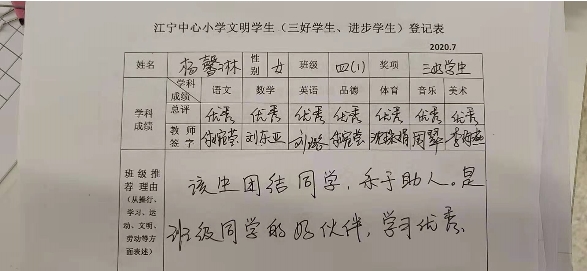 江宁中心小学文明学生（三好学生、进步学生）登记表
2020.7
姓名 杨馨琳 性别 女 班级 四(1) 奖项 三好学生
学科成绩 学科 成绩 语文 数学 英语 品德 体育 音乐 美术
总评 优秀 优秀 优秀 优秀 优秀 优秀 优秀
教师签字 刘东亚 刘璐 周翠
班级推荐理由
（从操行、学习、运动、文明、劳动等方面表述）
该生团结同学，乐于助人。是
班级同学的好伙伴，学习优秀、